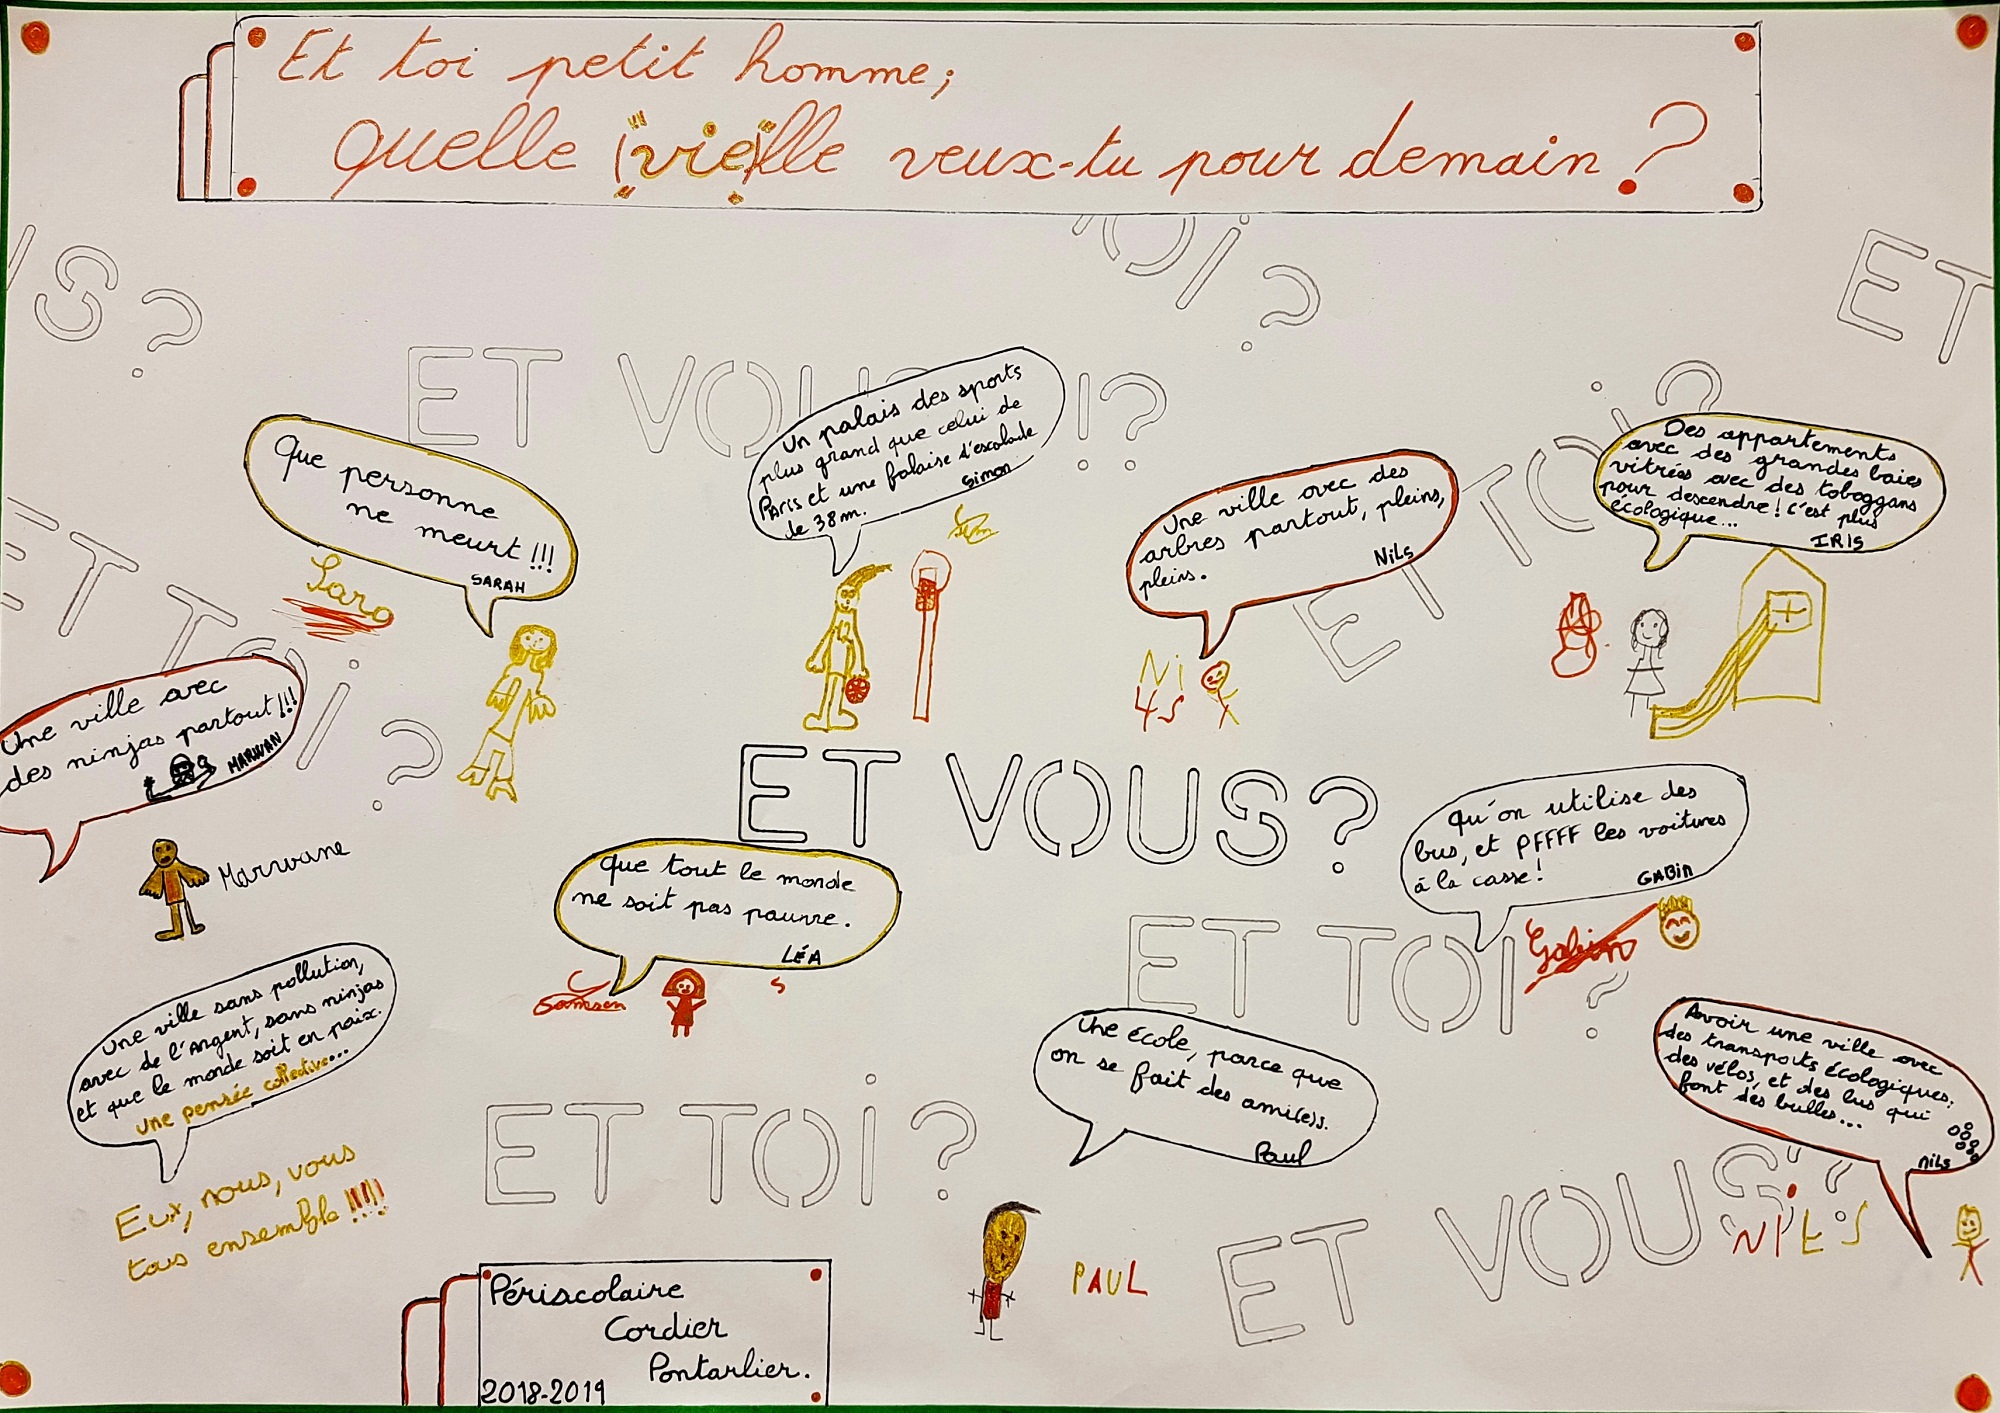 Et toi petit homme;
Quelle (vie)lle veux-tu pour demain ?
US ?
TOi ?
ET
ET VOUS !?
Que personne
ne meurt !!!
SARAH
Sara
Un palais des sports
plus grand que celui de
Paris et une falaise d'escalade
de 38m.
Simon
Une ville avec des
arbres partout, pleins,
pleins.
NiLs
Ni
LS
ET TOi ?
Des appartements
avec des grandes baies
vitrées avec des toboggans
pour descendre ! C'est plus
écologique...
IRIS
ET TOi ?
Une ville avec
des ninjas partout !!!
MARWAN
Marwane
ET VOUS ?
Que tout le monde
ne soit pas pauvre.
LÉA
Qu'on utilise des
bus, et PFFFF les voitures
à la casse !
GABiN
ET TOI ?
Une ville sans pollution,
avec de l'Argent, sans ninjas
et que le monde soit en paix.
une pensée collective...
Eux, nous, vous
tous ensemble !!!!
Une école, parce que
on se fait des ami(e)s.
Paul
PAUL
Avoir une ville avec
des transports écologiques:
des vélos, et des bus qui
font des bulles...
NiLs
NILS
ET TOi ?
ET VOUS ?
Périscolaire
Cordier
Pontarlier.
2018-2019